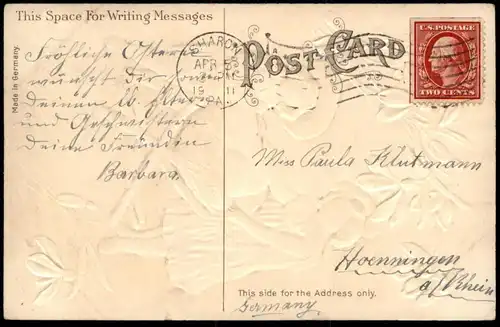 This Space For Writing Messages
Made in Germany.
Fröhliche Ostern
wünscht dir sowie
deinen lb. Eltern
und Geschwistern
deine Freundin
Barbara.
POST CARD
SHARON
APR
19 11
PA.
U.S. POSTAGE
TWO CENTS
Miss Paula Klutmann
Hoenningen
a/Rhein
This side for the Address only.
Germany